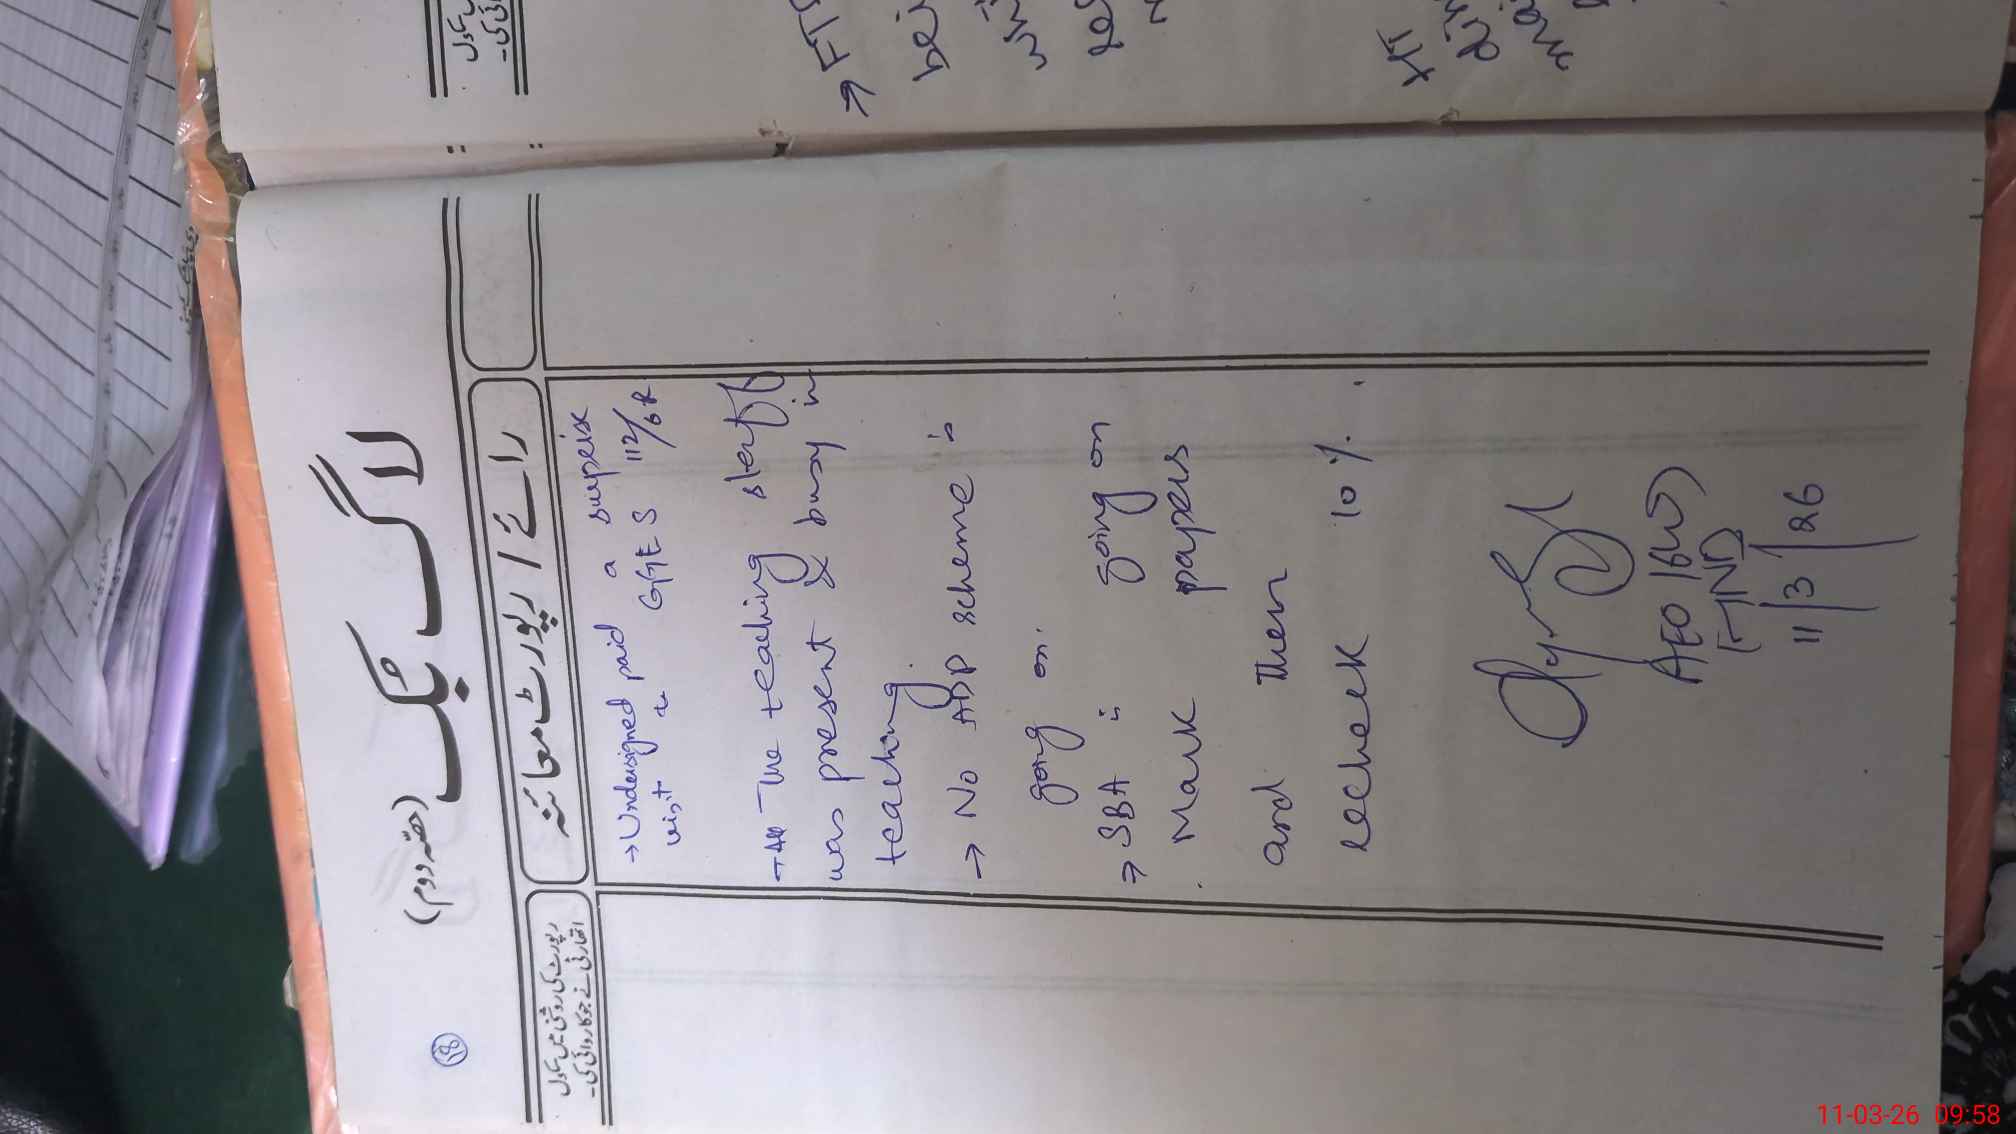 18
لاگ بُک (حصّہ دوم)
رائے / رپورٹ معائنہ
رپورٹ کی روشنی میں سکول
اتھارٹی نے جو کارروائی کی۔
→ Undersigned paid a surpeix
visit to GGES 112/6R
→ The teaching staff
was present & busy in
teaching.
→ No ADP scheme is
going on.
→ SBA is going on
Mark papers
and then
recheck 10 %.
AEO (BW)
11/3/26
→ FT
HT
11-03-26 09:58